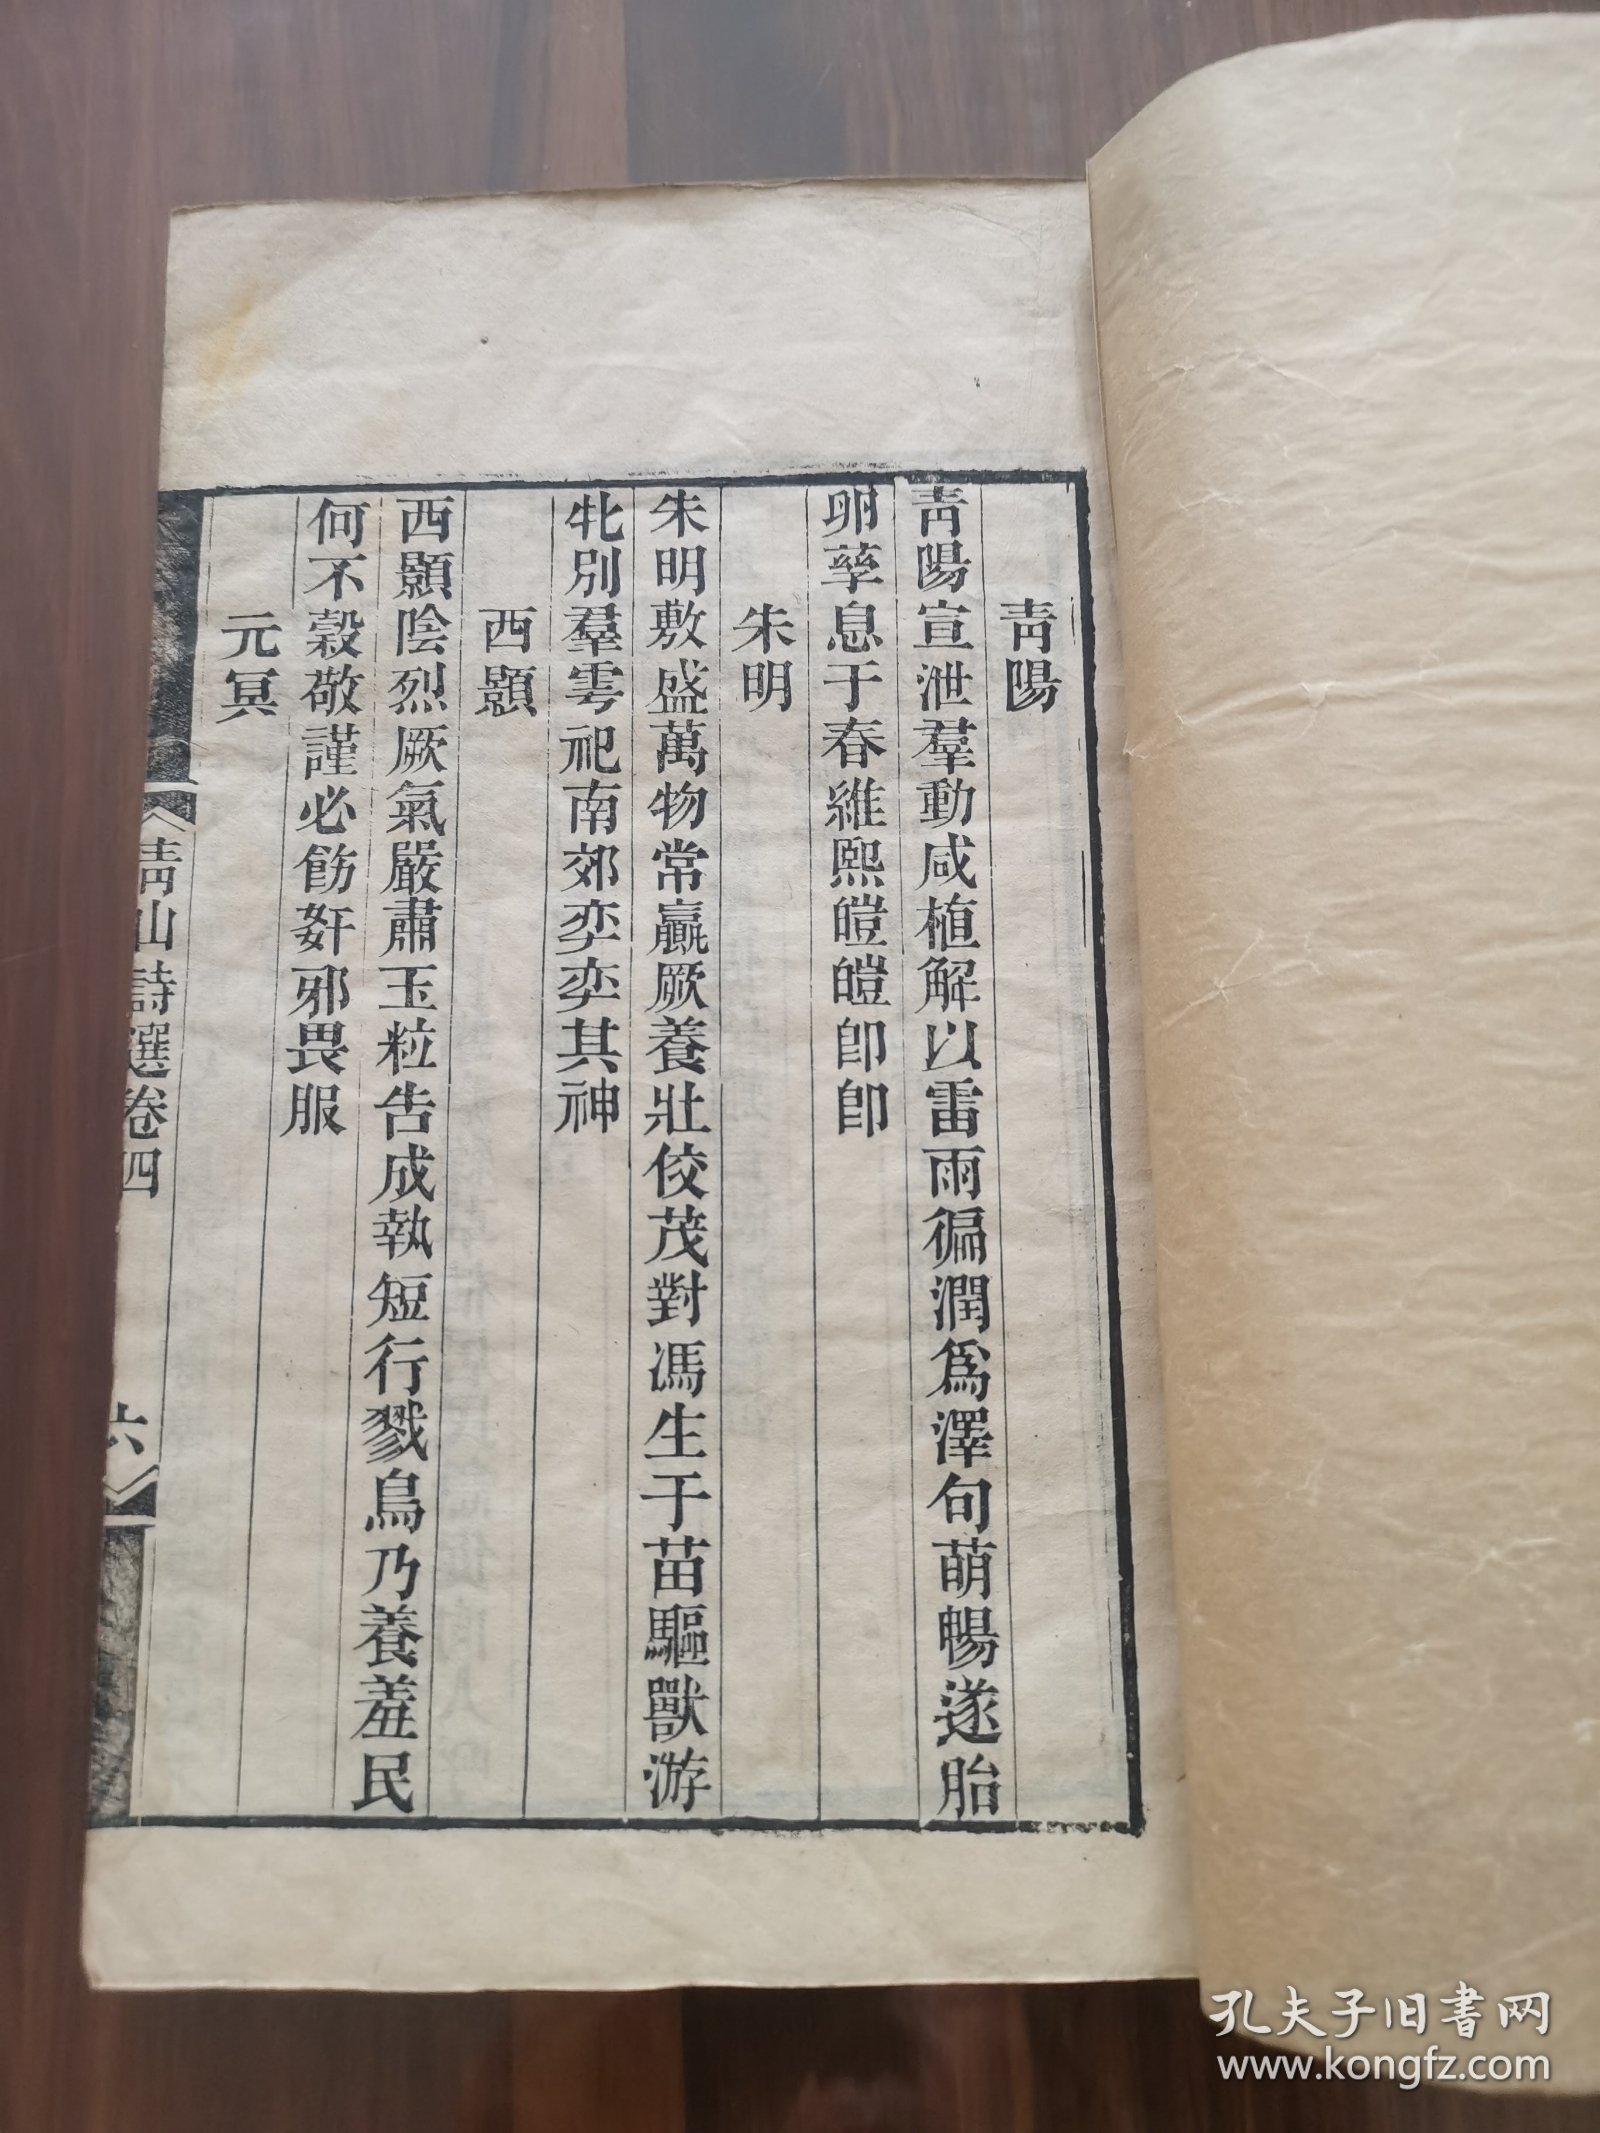 靑陽
靑陽宣泄羣動咸植解以雷雨徧潤爲澤句萌暢遂胎
卵孳息于春維熙皚皚卽卽
朱明
朱明敷盛萬物常羸厥養壯佼茂對馮生于苗驅獸游
牝別羣雩祀南郊奕奕其神
西顥
西顥陰烈厥氣嚴肅玉粒告成執短行戮鳥乃養羞民
何不榖敬謹必飭姧邪畏服
元冥
靑山詩選卷四
六
孔夫子旧书网
www.kongfz.com